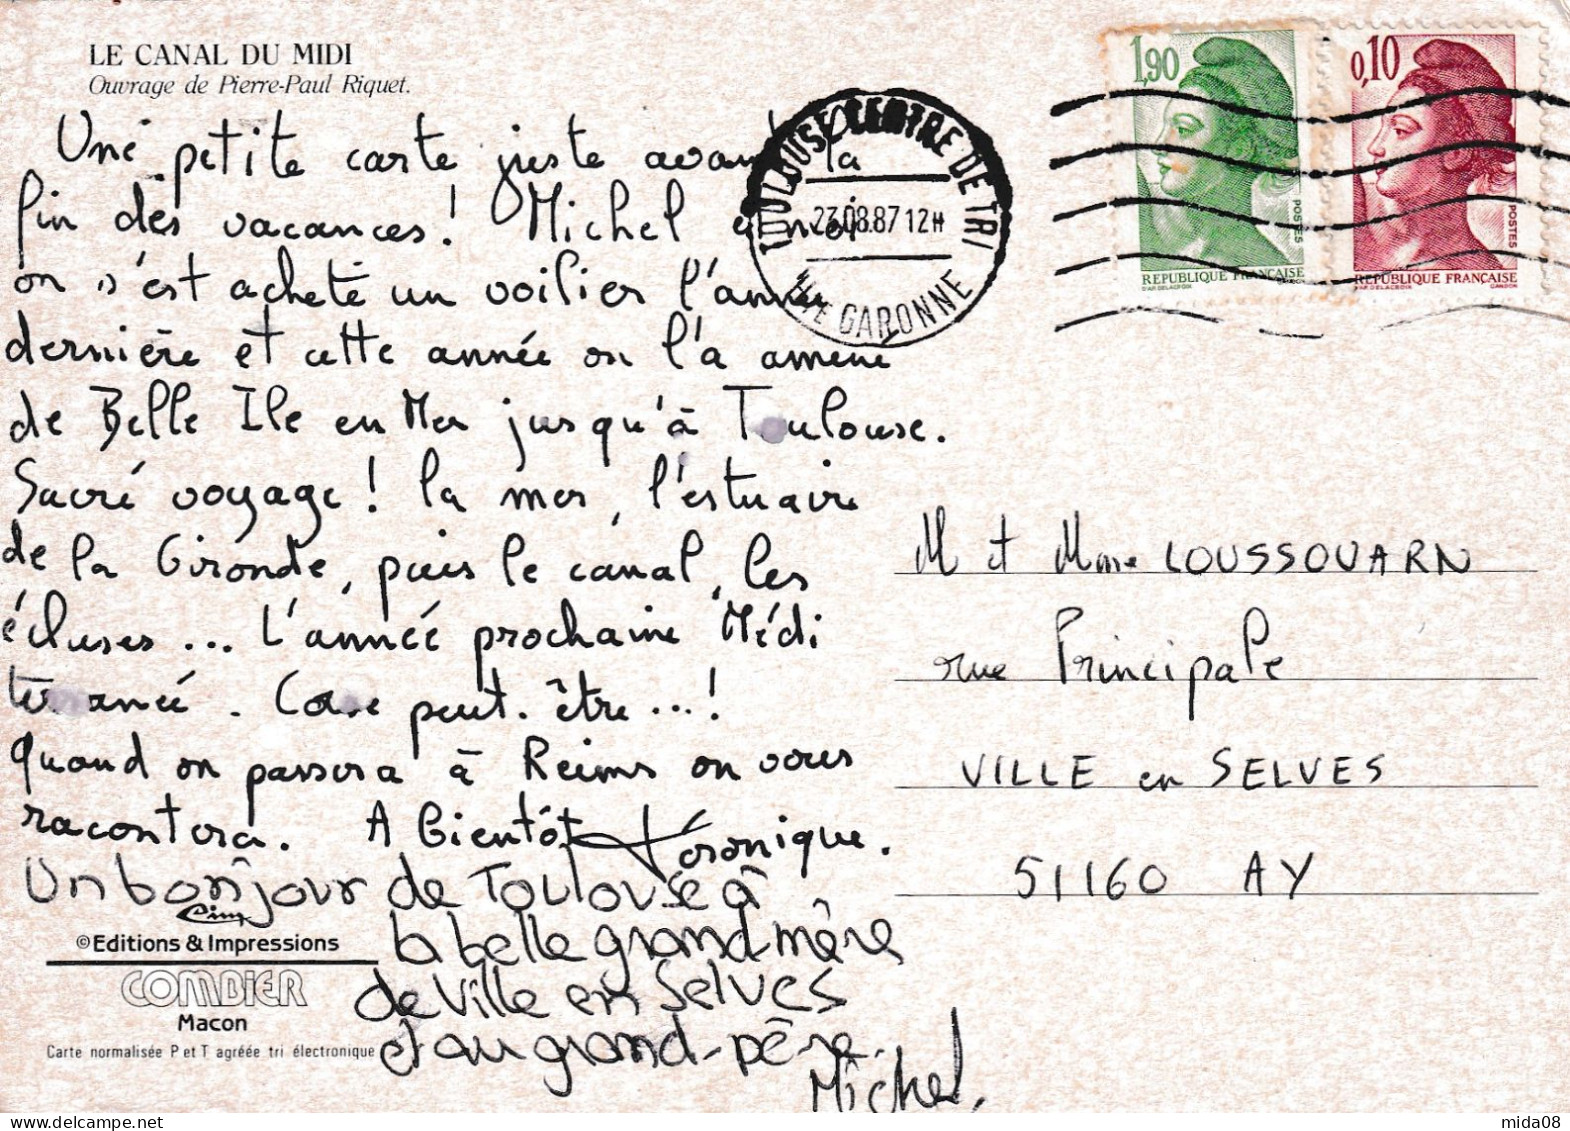 LE CANAL DU MIDI
Ouvrage de Pierre-Paul Riquet.
Une petite carte juste avant la
fin des vacances! Michel et moi
on s'est acheté un voilier l'année
dernière et cette année on l'a amené
de Belle Ile en Mer jusqu'à Toulouse.
Sacré voyage! la mer, l'estuaire
de la Gironde, puis le canal, les
écluses... L'année prochaine Médi
terranée. Corse peut-être...!
Quand on passera à Reims on vous
racontera. A bientôt Véronique.
Un bonjour de Toulouse à
la belle grand-mère
de Ville en Selves
et au grand-père.
Michel.
Cim
©Editions & Impressions
COMBIER
Macon
Carte normalisée P et T agréée tri électronique
TOULOUSE CENTRE DE TRI
23.08.87 12H
HTE GARONNE
1,90
POSTES
REPUBLIQUE FRANÇAISE
D'AP. DELACROIX GANDON
0,10
POSTES
REPUBLIQUE FRANÇAISE
D'AP. DELACROIX GANDON
M et Mme LOUSSOUARN
rue Principale
VILLE en SELVES
51160 AY
mida08